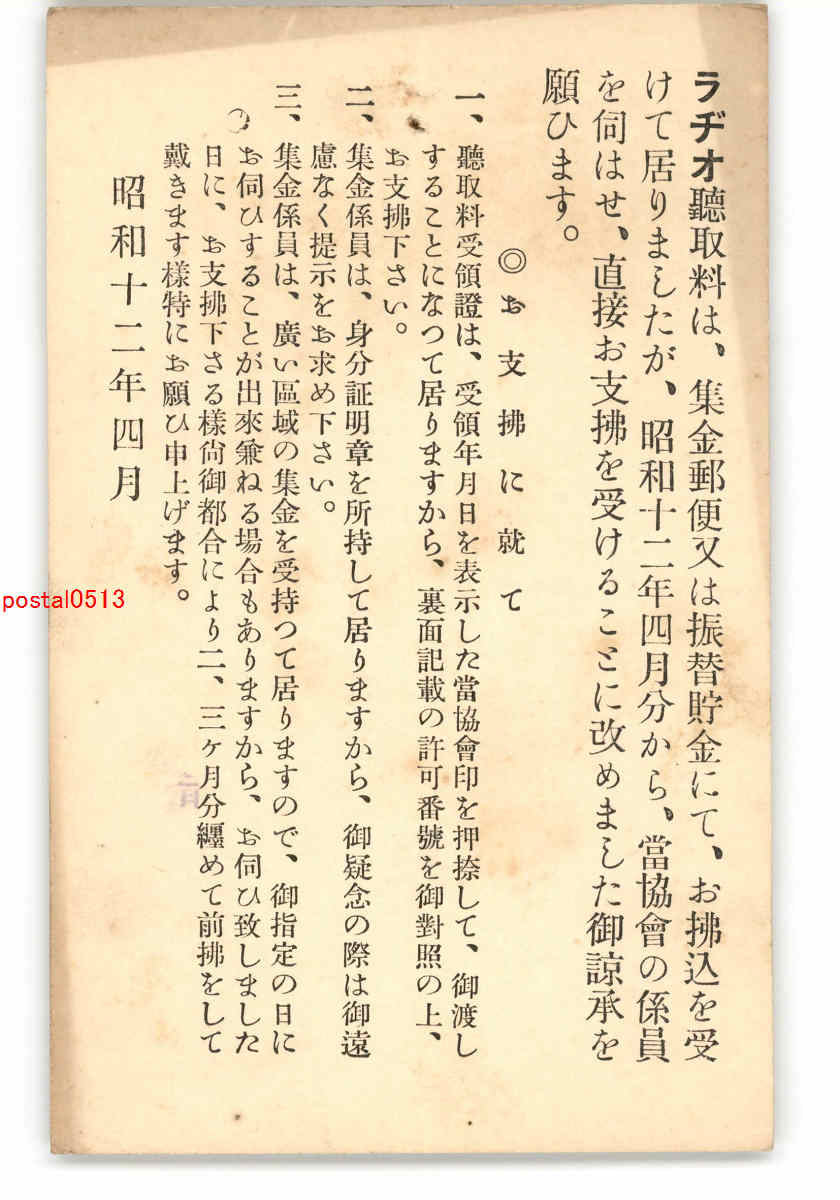 ラヂオ聽取料は、集金郵便又は振替貯金にて、お拂込を受
けて居りましたが、昭和十二年四月分から、當協會の係員
を伺はせ、直接お支拂を受けることに改めました御諒承を
願ひます。
◎お支拂に就て
一、聽取料受領證は、受領年月日を表示した當協會印を押捺して、御渡し
することになつて居りますから、裏面記載の許可番號を御對照の上、
お支拂下さい。
二、集金係員は、身分証明章を所持して居りますから、御疑念の際は御遠
慮なく提示をお求め下さい。
三、集金係員は、廣い區域の集金を受持つて居りますので、御指定の日に
お伺ひすることが出來兼ねる場合もありますから、お伺ひ致しました
日に、お支拂下さる樣尙御都合により二、三ヶ月分纒めて前拂をして
戴きます樣特にお願ひ申上げます。
昭和十二年四月
postal0513